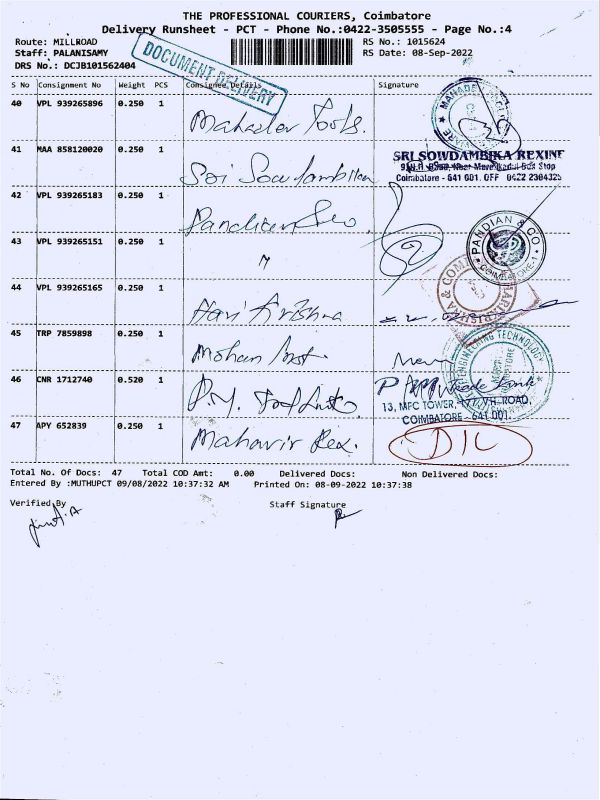 THE PROFESSIONAL COURIERS, Coimbatore
Delivery Runsheet - PCT - Phone No.:0422-3505555 - Page No.:4
Route: MILLROAD RS No.: 1015624
Staff: PALANISAMY RS Date: 08-Sep-2022
DRS No.: DCJB101562404
DOCUMENT DELIVERY
S No Consignment No Weight PCS Consignee Details Signature
40 VPL 939265896 0.250 1 Mahadev Tools.
41 MAA 858120020 0.250 1 Sri Sowdambika
SRI SOWDAMBIKA REXINE
Coimbatore - 641 001. OFF 0422 2304325
42 VPL 939265183 0.250 1 Pandian
PANDIAN & CO
COIMBATORE-1
43 VPL 939265151 0.250 1 "
44 VPL 939265165 0.250 1 Hari Krishna
45 TRP 7859898 0.250 1 Mohan Inst.
46 CNR 1712740 0.520 1 P.M.
Trade Link
13, MFC TOWER, 177, V.H. ROAD,
COIMBATORE - 641 001.
47 APY 652839 0.250 1 Mahavir Rex. D/L
Total No. Of Docs: 47 Total COD Amt: 0.00 Delivered Docs: Non Delivered Docs:
Entered By :MUTHUPCT 09/08/2022 10:37:32 AM Printed On: 08-09-2022 10:37:38
Verified By Staff Signature